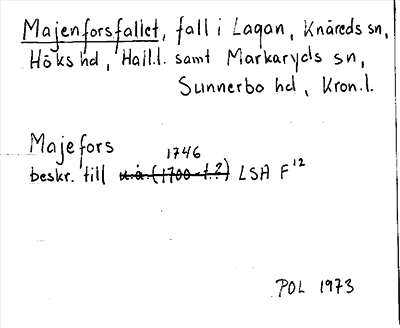 Majenforsfallet, fall i Lagan, Knäreds sn,
Höks hd, Hall.l. samt Markaryds sn,
Sunnerbo hd, Kron.l.
Majefors
1746
beskr. till u.å. (1700-t.?) LSA F 12
POL 1973